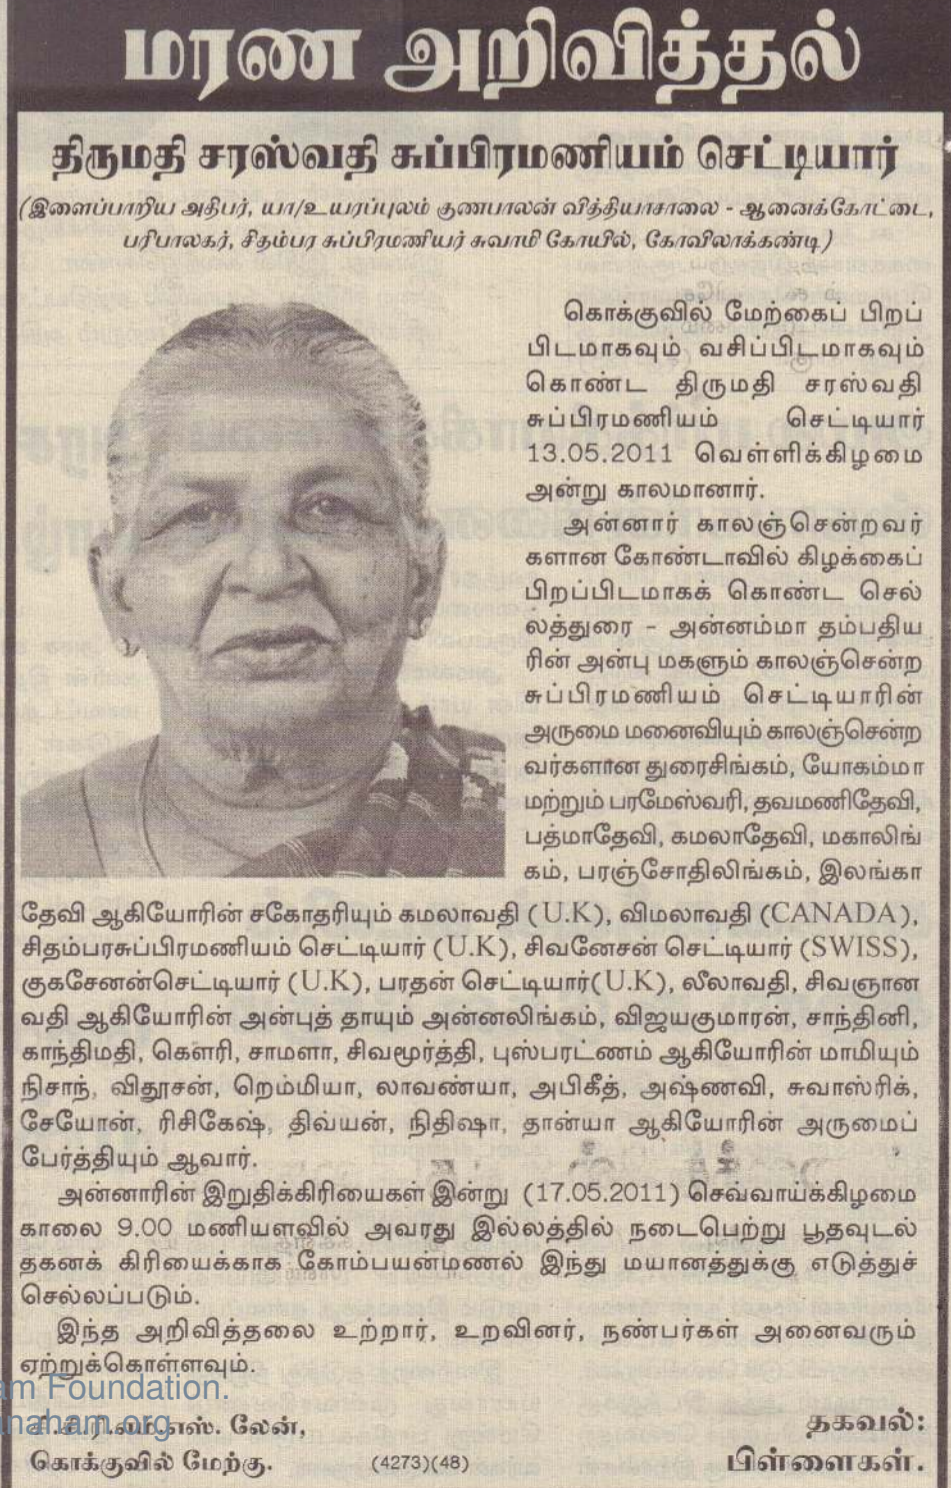 மரண அறிவித்தல்
திருமதி சரஸ்வதி சுப்பிரமணியம் செட்டியார்
(இளைப்பாறிய அதிபர், யா/உயரப்புலம் குணபாலன் வித்தியாசாலை - ஆனைக்கோட்டை,
பரிபாலகர், சிதம்பர சுப்பிரமணியர் சுவாமி கோயில், கோவிலாக்கண்டி)
கொக்குவில் மேற்கைப் பிறப்
பிடமாகவும் வசிப்பிடமாகவும்
கொண்ட திருமதி சரஸ்வதி
சுப்பிரமணியம் செட்டியார்
13.05.2011 வெள்ளிக்கிழமை
அன்று காலமானார்.
அன்னார் காலஞ்சென்றவர்
களான கோண்டாவில் கிழக்கைப்
பிறப்பிடமாகக் கொண்ட செல்
லத்துரை - அன்னம்மா தம்பதிய
ரின் அன்பு மகளும் காலஞ்சென்ற
சுப்பிரமணியம் செட்டியாரின்
அருமை மனைவியும் காலஞ்சென்ற
வர்களான துரைசிங்கம், யோகம்மா
மற்றும் பரமேஸ்வரி, தவமணிதேவி,
பத்மாதேவி, கமலாதேவி, மகாலிங்
கம், பரஞ்சோதிலிங்கம், இலங்கா
தேவி ஆகியோரின் சகோதரியும் கமலாவதி (U.K), விமலாவதி (CANADA),
சிதம்பரசுப்பிரமணியம் செட்டியார் (U.K), சிவனேசன் செட்டியார் (SWISS),
குகசேனன்செட்டியார் (U.K), பரதன் செட்டியார்(U.K), லீலாவதி, சிவஞான
வதி ஆகியோரின் அன்புத் தாயும் அன்னலிங்கம், விஜயகுமாரன், சாந்தினி,
காந்திமதி, கௌரி, சாமளா, சிவமூர்த்தி, புஸ்பரட்ணம் ஆகியோரின் மாமியும்
நிசாந், விதூசன், றெம்மியா, லாவண்யா, அபிகீத், அஷ்ணவி, சுவாஸ்ரிக்,
சேயோன், ரிசிகேஷ், திவ்யன், நிதிஷா, தான்யா ஆகியோரின் அருமைப்
பேர்த்தியும் ஆவார்.
அன்னாரின் இறுதிக்கிரியைகள் இன்று (17.05.2011) செவ்வாய்க்கிழமை
காலை 9.00 மணியளவில் அவரது இல்லத்தில் நடைபெற்று பூதவுடல்
தகனக் கிரியைக்காக கோம்பயன்மணல் இந்து மயானத்துக்கு எடுத்துச்
செல்லப்படும்.
இந்த அறிவித்தலை உற்றார், உறவினர், நண்பர்கள் அனைவரும்
ஏற்றுக்கொள்ளவும்.
am Foundation.
anaham.org
எஸ். லேன்,
தகவல்:
கொக்குவில் மேற்கு.
(4273)(48)
பிள்ளைகள்.